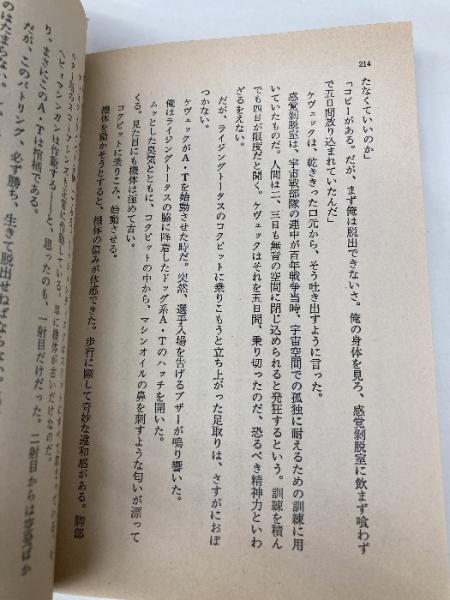 214
たなくていいのか」
「コピーがある。だが、まず俺は脱出できないさ。俺の身体を見ろ、感覚剝脱室に飲まず喰わず
で五日間放り込まれていたんだ」
ケヴェックは、乾ききった口元から、そう吐き出すように言った。
感覚剝脱室は、宇宙戦部隊の連中が百年戦争当時、宇宙空間での孤独に耐えるための訓練に用
いていたものだ。人間は二、三日も無音の空間に閉じ込められると発狂するという。訓練を積ん
でも四日が限度だと聞く。ケヴェックはそれを五日間、乗り切ったのだ、恐るべき精神力といわ
ざるをえない。
だが、ライジングトータスのコクピットに乗りこもうと立ち上がった足取りは、さすがにおぼ
つかない。
ケヴェックがA・Tを始動させた時だ。突然、選手入場を告げるブザーが鳴り響いた。
俺はライジングトータスの脇に降着したドッグ系A・Tのハッチを開いた。
ムッとした臭気とともに、コクピットの中から、マシンオイルの鼻を刺すような匂いが漂って
くる。見た目にも機体は極めて古い。
コクピットに乗りこみ、始動させる。
機体を動かそうとすると、機体の傷みが体感できた。歩行に際して奇妙な違和感がある。脚部
単に機体が古いだけなのだ。
り。まさにこのA・Tは棺桶である。
だが、このバトリング、必ず勝ち、生きて脱出せねばならない。
と、思ったのも、一射目だけだった。二射目からは
のはたまらない。